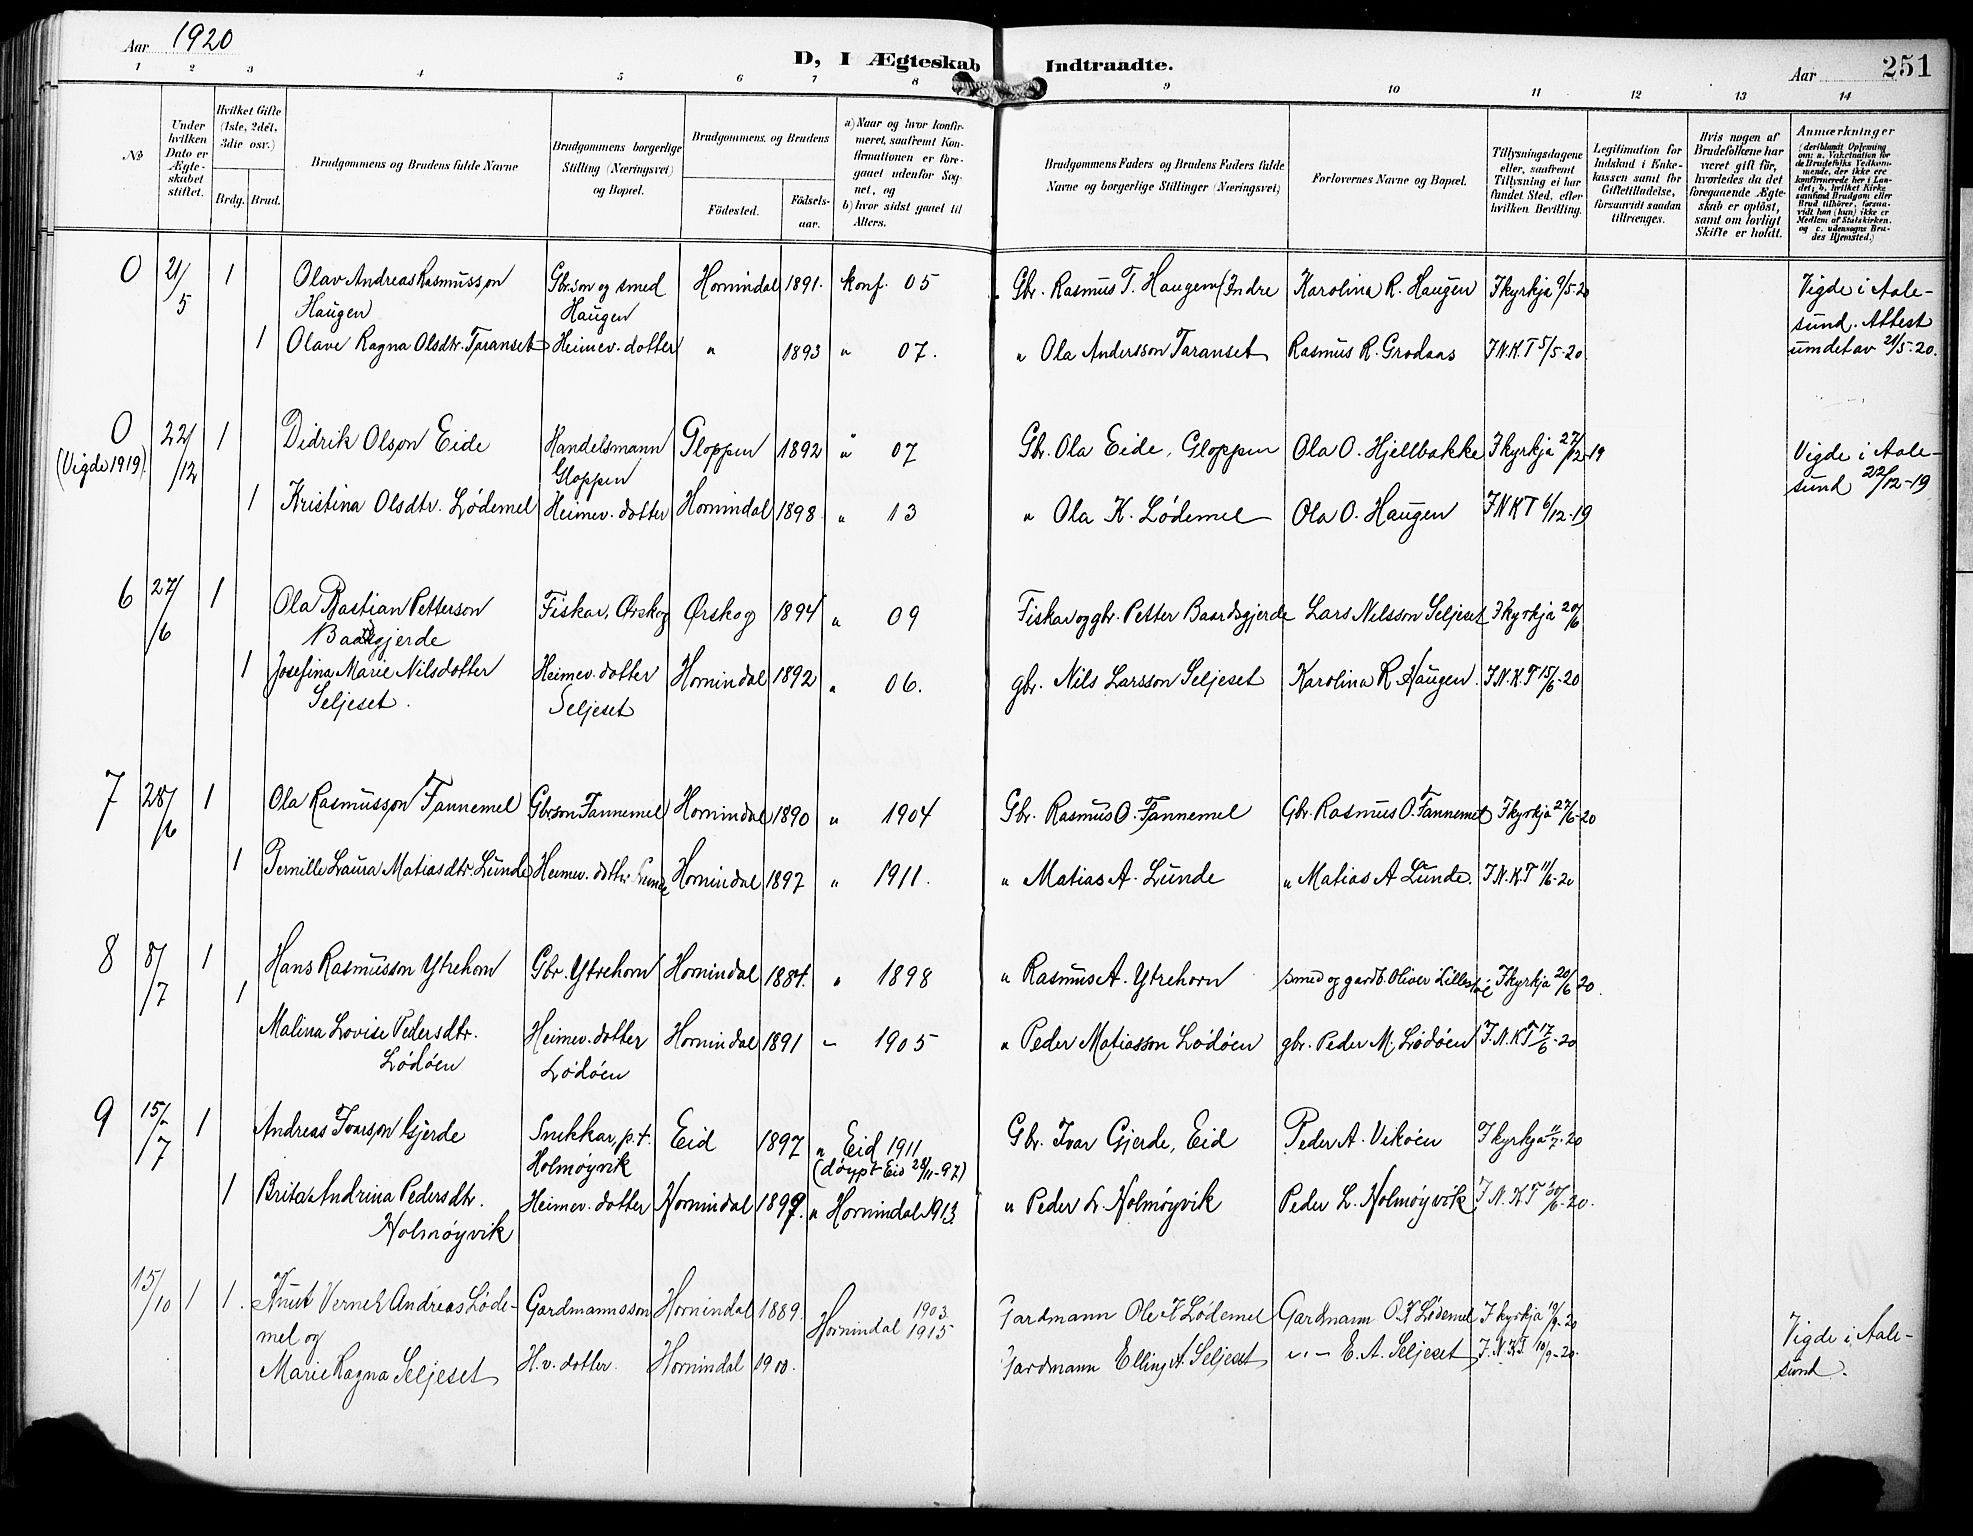 Aar 1920
D, I Ægteskab Indtraadte.
Aar 251
1 2 3 4 5 6 7 8 9 10 11 12 13 14
№
Under hvilken Dato er Ægteskabet stiftet.
Hvilket Gifte (1ste, 2det, 3die osv.)
Brdg. Brud.
Brudgommens og Brudens fulde Navne
Brudgommens borgerlige Stilling (Næringsvei) og Bopæl.
Brudgommens og Brudens
Fødested. Fødsels-aar.
a) Naar og hvor konfirmeret, saafremt Konfirmationen er foregaaet udenfor Sognet, og
b) hvor sidst gaaet til Alters.
Brudgommens Faders og Brudens Faders fulde Navne og borgerlige Stillinger (Næringsvei)
Forlovernes Navne og Bopæl.
Tillysningsdagene eller, saafremt Tillysning ei har fundet Sted, efter hvilken Bevilling.
Legitimation for Indskud i Enkekassen samt for Giftetilladelse, forsaavidt saadan tiltrænges.
Hvis nogen af Brudefolkene har været gift før, hvorledes da det foregaaende Ægteskab er opløst, samt om lovligt Skifte er holdt.
Anmærkninger (deriblandt Oplysning om: a. Vakcination for de Brudefolks Vedkommende, der ikke ere konfirmerede her i Landet; b. hvilket Kirkesamfund Brudgom eller Brud tilhører, forsaavidt han (hun) ikke er Medlem af Statskirken. og c. udensogns Brudes Hjemsted.)
0 21/5 1 Olav Andreas Rasmusson Gbr.son og smed Hornindal 1891. konf. 05 Gbr. Rasmus T. Haugen (Indre Karolina R. Haugen I kyrkja 9/5-20 Vigde i Aale-
Haugen Haugen sund. Attest
1 Olave Ragna Olsdtr. Taranset Heimev. dotter " 1893 " 07. " Ola Andersson Taranset Rasmus R. Grodaas I N. K. T 5/5-20 umdet av 21/5-20.
0 22/12 1 Didrik Olson Eide Handelsmann Gloppen 1892 " 07 Gbr. Ola Eide, Gloppen Ola O. Hjellbakke I kyrkja 27/12-19 Vigde i Aale-
(Vigde 1919) Gloppen sund 22/12-19
1 Kristina Olsdtr. Lødemel Heimev. dotter Hornindal 1898 " 13 " Ola K. Lødemel Ola O. Haugen I N K T 6/12-19
6 27/6 1 Ola Bastian Petterson Fiskar, Ørskog Ørskog 1894 " 09 Fiskar og gbr. Petter Baardsgjerde Lars Nilsson Seljeset I kyrkja 20/6
Baardsgjerde
1 Josefina Marie Nilsdotter Heimev. dotter Hornindal 1892 " 06. gbr. Nils Larsson Seljeset Karolina R. Haugen. I N. K. T 15/6-20
Seljeset. Seljeset
7 28/6 1 Ola Rasmusson Tannemel Gbr.son Tannemel Hornindal 1890 " 1904 Gbr. Rasmus O. Tannemel Gbr. Rasmus O. Tannemel I kyrkja 27/6-20
1 Pernille Laura Matiasdtr Lunde Heimev. dotter Lunde Hornindal 1897 " 1911. " Matias A. Lunde " Matias A Lunde. I N. K. T 11/6-20
8 8/7 1 Hans Rasmusson Ytrehorn Gbr. Ytrehorn Hornindal 1884. " 1898 " Rasmus A. Ytrehorn smed og gardb. Oliver Lillestøl I kyrkja 20/6-20.
1 Malina Lovise Pedersdtr. Heimev. dotter Hornindal 1891 – 1905 " Peder Matiasson Lødøen gbr. Peder M. Lødøen I. N. K T 17/6-20
Lødøen Lødøen
9 15/7 1 Andreas Ivarson Gjerde Snikkar, p.t. Eid 1897 " Eid 1911 Gbr. Ivar Gjerde, Eid Peder A. Vikøen I kyrkja 11/7-20
Holmøyvik (døypt Eid 28/11-97)
1 Brita Andrina Pedersdtr. Heimev. dotter Hornindal 1899. " Hornindal 1913 " Peder L. Holmøyvik Peder L. Holmøyvik I. N. K T 30/6-20.
Holmøyvik
15/10 1 1. Knut Vernek Andreas Løde- Gardmannsson Hornindal 1889. Hornindal 1903 Gardmann Ole K Lødemel Gardmann O. K Lødemel I kyrkja 19/9-20
mel og 1915 Vigde i Aale-
Marie Ragna Seljeset H.v. dotter. Hornindal 1900. Gardmann Elling A. Seljeset " – E. A. Seljeset I. N. K T. 10/9-20. sund.